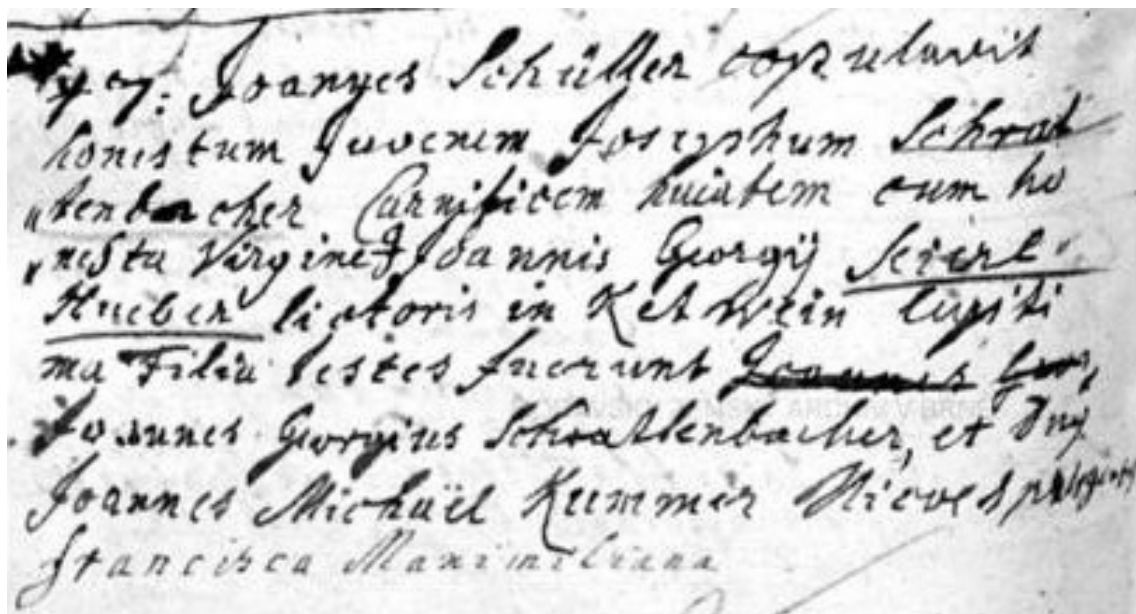 47: Joannes Schüller copulavit
honestum Juvenem Josephum Schrat
"tenbacher Carnificem huiatem cum ho
"nesta Virgine Joannis Georgÿ Seierl"
Hueber lictoris in Ketwein legiti
ma Filia testes fuerunt Joannes
Joannes Georgius Schrattenbacher, et Dnus
Joannes Michaël Kummer
Francisca Maximiliana